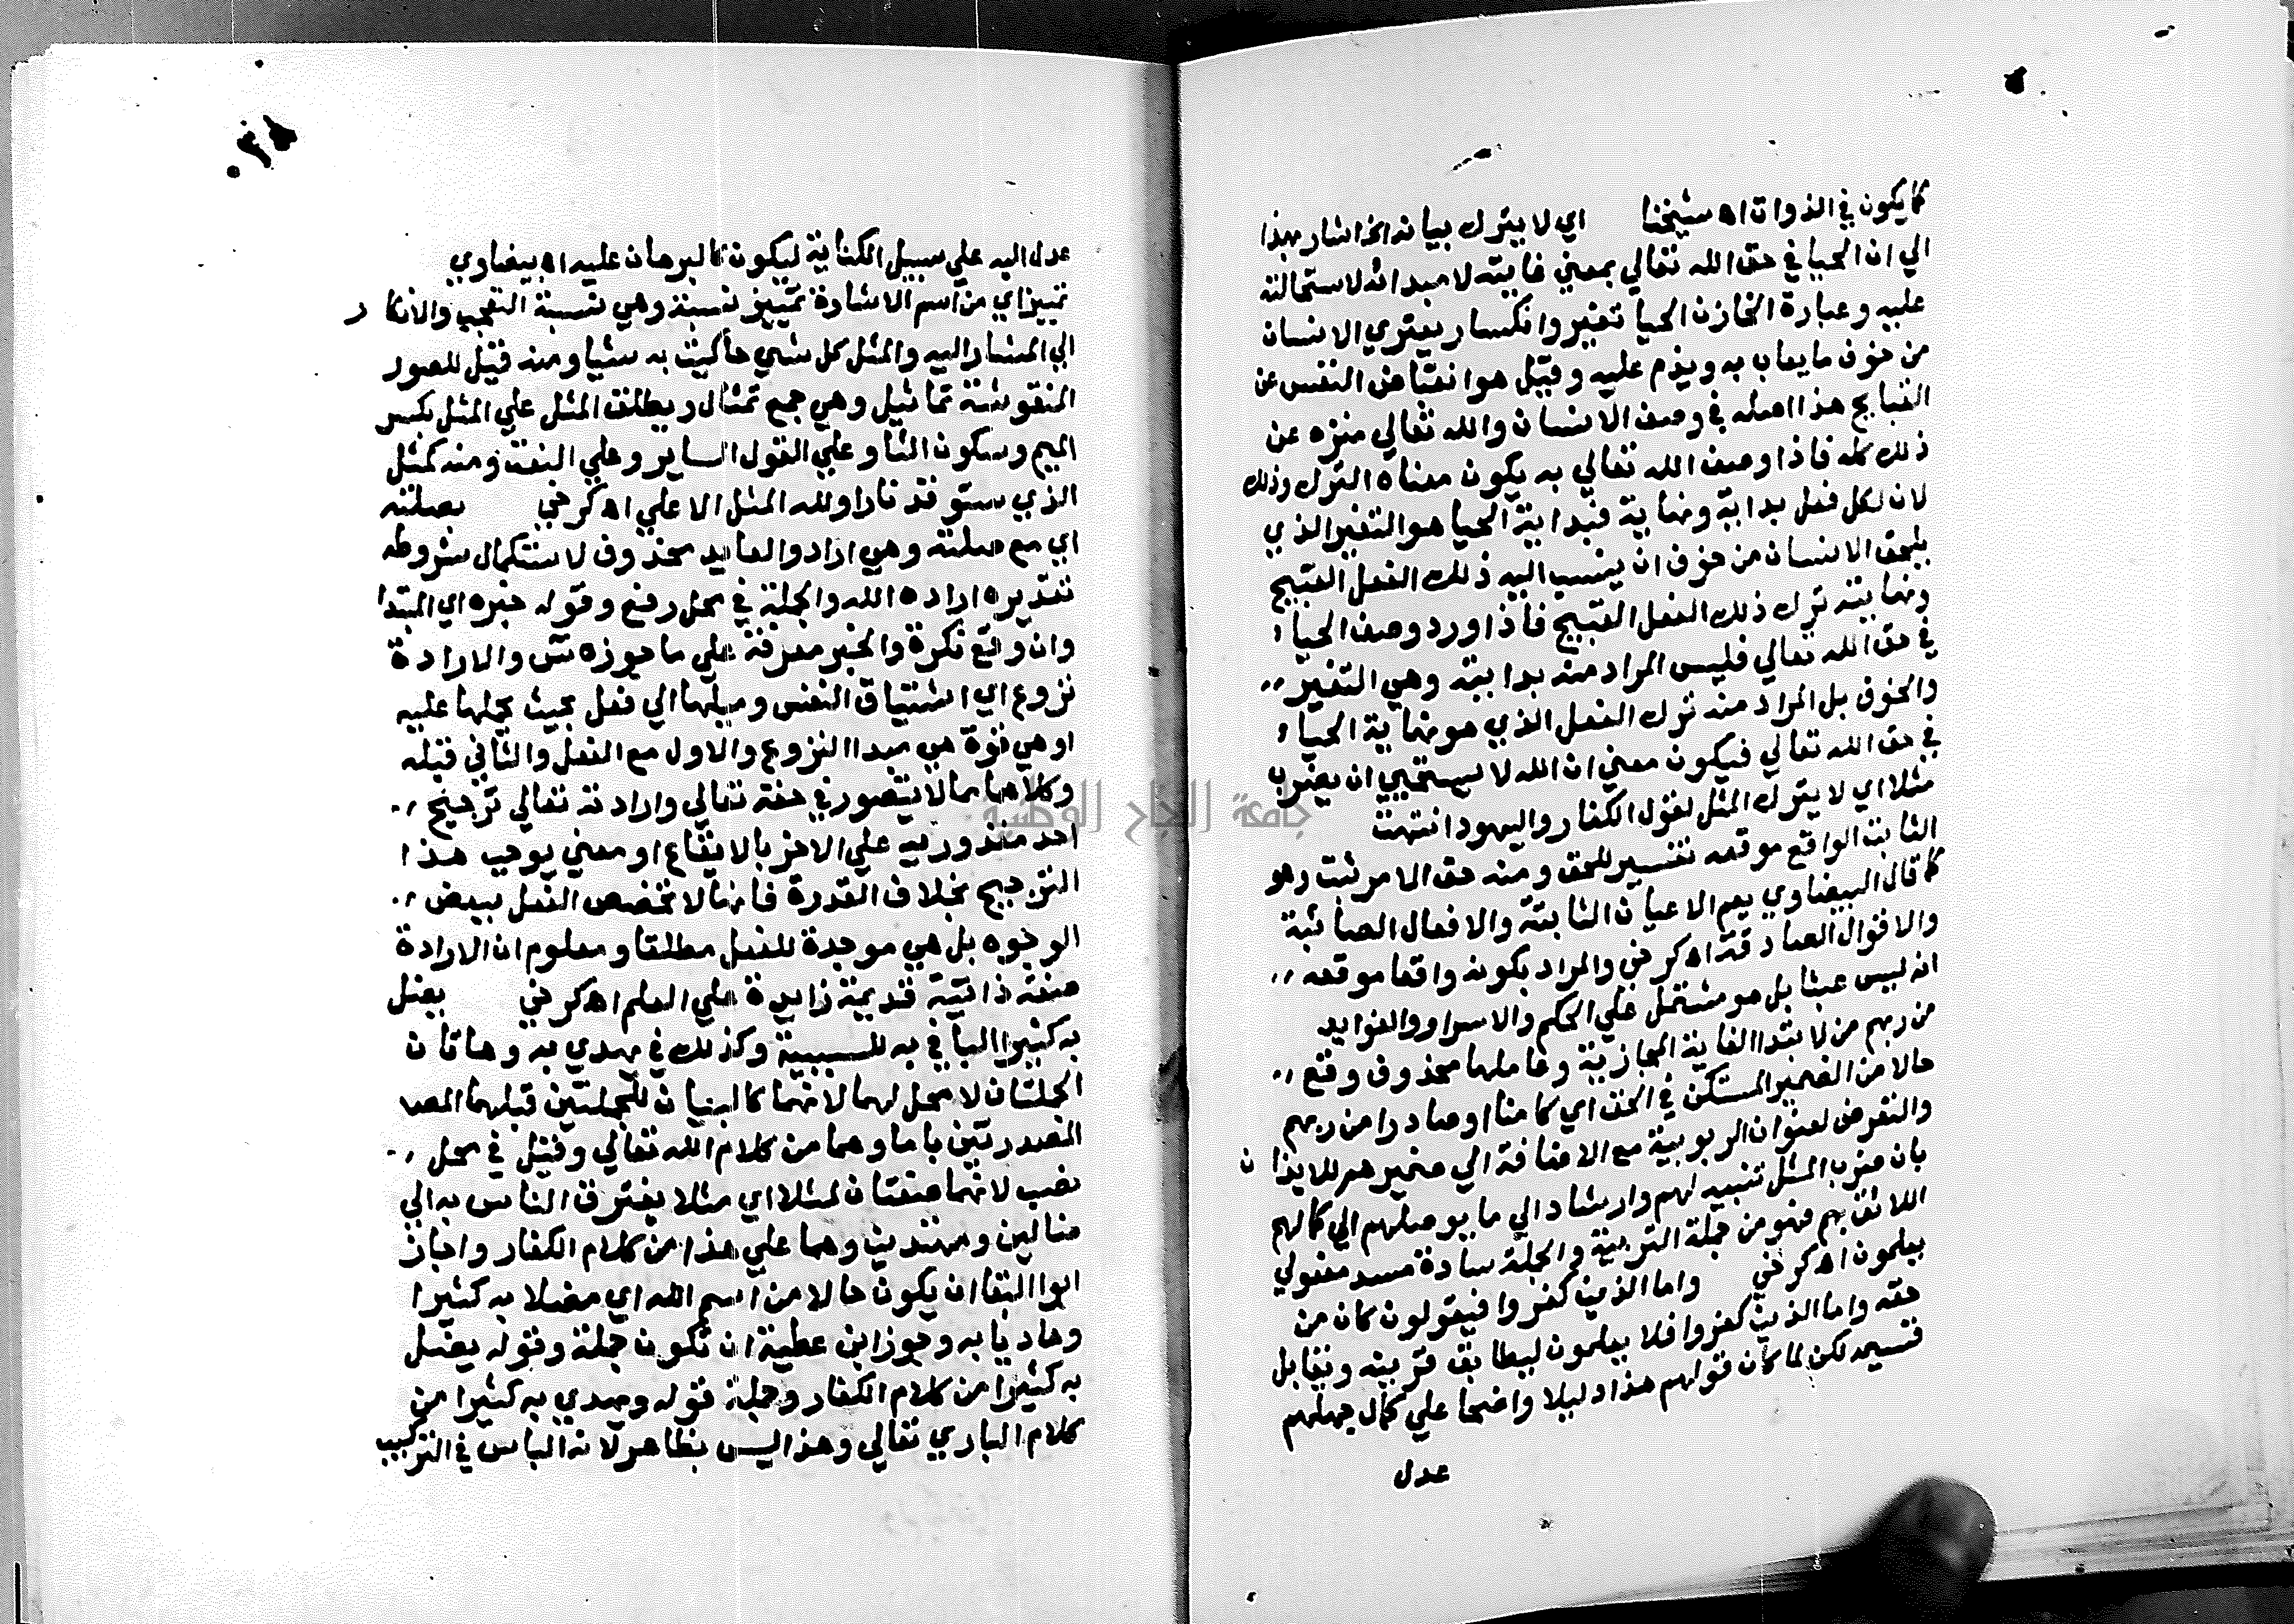 كما يكون في الذوات اه شيخنا اي لا يترك بيانه الخ اشار بهذا
الي ان الحيا في حق الله تعالي بمعني غايته لا مبدائه لاستحالته
عليه وعبارة الخازن الحيا تغير وانكسار يعتري الانسان
من خوف ما يعاب به ويذم عليه وقيل هو انقباض النفس عن
القبايح هذا اصله في وصف الانسان والله تعالي منزه عن
ذلك كله فاذا وصف الله تعالي به يكون معناه الترك وذلك
لان لكل فعل بداية ونهاية فبداية الحيا هو التغير الذي
يلحق الانسان من خوف ان ينسب اليه ذلك الفعل القبيح
ونهايته ترك ذلك الفعل القبيح فاذا ورد وصف الحياء
في حق الله تعالي فليس المراد منه بدايته وهي التغير
والخوف بل المراد منه ترك الفعل الذي هو نهاية الحياء
في حق الله تعالي فيكون معني ان الله لا يستحيي ان يضرب
مثلا اي لا يترك المثل لقول الكفار واليهود انتهت
الثابت الواقع موقعه تفسير للحق ومنه حق الامر ثبت وهو
كما قال البيضاوي يعم الاعيان الثابتة والافعال الصائبة
والاقوال الصادقة اه كرخي والمراد بكونه واقعا موقعه
انه ليس عبثا بل هو مشتمل علي الحكم والاسرار والفوايد
من ربهم من لابتدا الغاية المجازية وعاملها محذوف وقع
حالا من الضمير المستكن في الحق اي كائنا او صادرا من ربهم
والتعرض لعنوان الربوبية مع الاضافة الي ضميرهم للايذان
بان ضرب المثل تنبيه لهم وارشاد الي ما يوصلهم الي كمالهم
اللائق بهم فهو من جملة التربية والجملة سادة مسد مفعولي
يعلمون اه كرخي واما الذين كفروا فيقولون كان من
حقه واما الذين كفروا فلا يعلمون ليطابق قرينه ويقابل
قسيمه لكن لما كان قولهم هذا دليلا واضحا علي كمال جهلهم
عدل
٠٣٨
عدل اليه علي سبيل الكناية ليكون كالبرهان عليه اه بيضاوي
تمييز اي من اسم الاشارة تمييز نسبة وهي نسبة التعجب والانكار
الي المشار اليه والمثل كل شي حاكيت به شيا ومنه قيل للصور
المنقوشة تماثيل وهي جمع تمثال ويطلق المثل علي المثل بكسر
الميم وسكون الثا وعلي القول الساير وعلي النعت ومنه كمثل
الذي ستوقد نارا ولله المثل الاعلي اه كرخي بصلته
اي مع صلته وهي اراد والعايد محذوف لاستكمال شروطه
تقديره اراده الله والجملة في محل رفع وقوله خبره اي المبتدا
وان وقع نكرة والخبر معرفة علي ما جوزه س والارادة
نزوع اي اشتياق النفس وميلها الي فعل بحيث يحملها عليه
او هي قوة هي مبدا النزوع والاول مع الفعل والثاني قبله
وكلاهما مما لا يتصور في حقه تعالي وارادته تعالي ترجيح
احد مقدوريه علي الاخر بالايقاع او معني يوجب هذا
الترجيح بخلاف القدرة فانها لا تخصص الفعل ببعض
الوجوه بل هي موجدة للفعل مطلقا ومعلوم ان الارادة
صفة ذاتية قديمة زايدة علي العلم اه كرخي يضل
به كثيرا البا في به للسببية وكذلك في يهدي به وهاتان
الجملتان لا محل لهما لانهما كالبيان للجملتين قبلهما المصد
المصدرتين باما وهما من كلام الله تعالي وقيل في محل
نصب لانهما صفتان لمثلا اي مثلا يفترق الناس به الي
ضالين ومهتدين وهما علي هذا من كلام الكفار واجاز
ابوا البقا ان يكون حالا من اسم الله اي مضلا به كثيرا
وهاديا به وجوز ابن عطية ان تكون جملة وقوله يضل
به كثيرا من كلام الكفار وجملة قوله ويهدي به كثيرا من
كلام الباري تعالي وهذا ليس بظاهر لانه الباس في التركيب
جامعة النجاح الوطنية